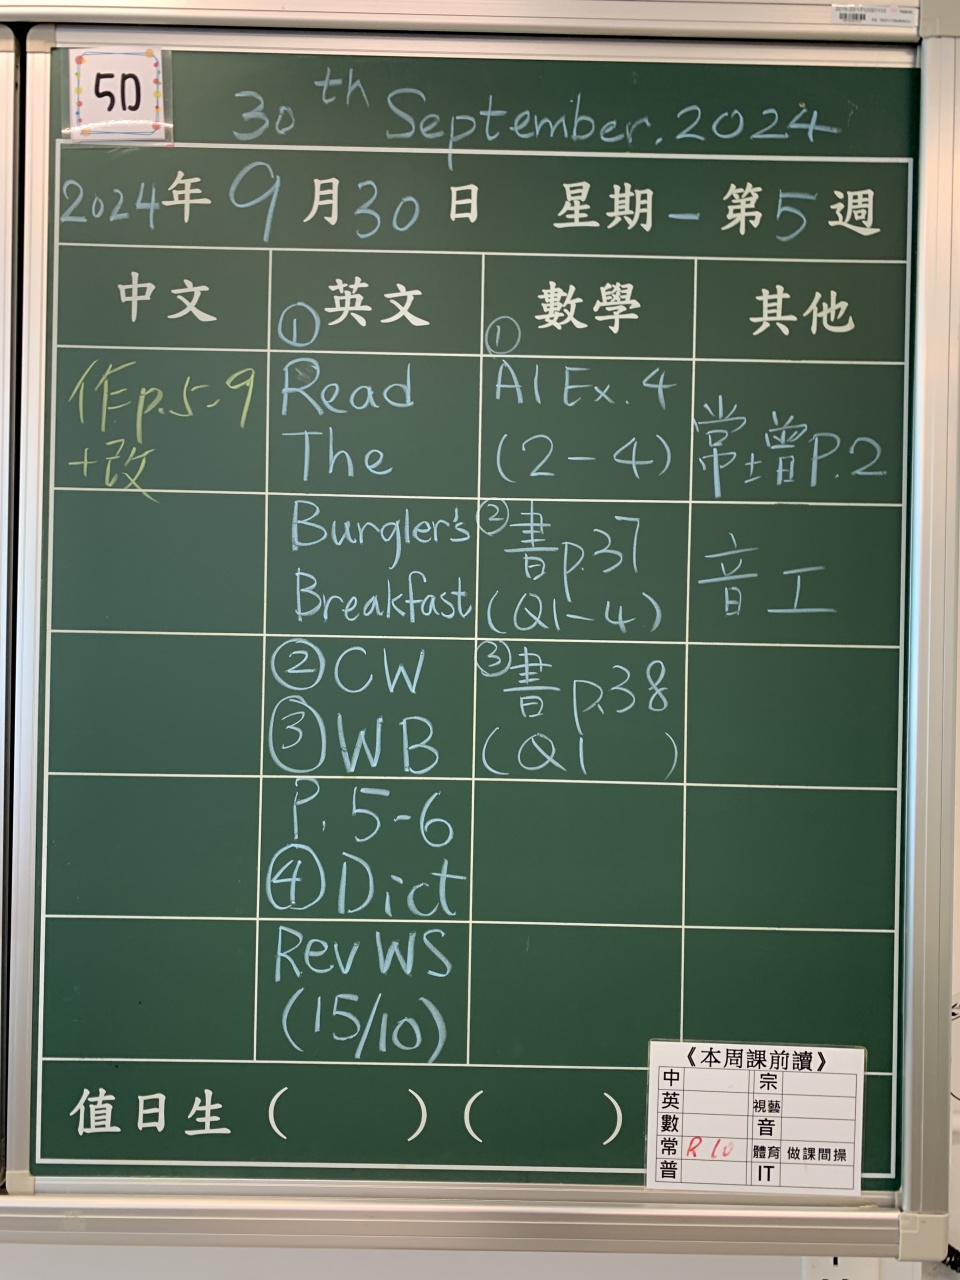 5D
30th September. 2024
2024年9月30日 星期一 第5週
中文
英文
數學
其他
作p.5-9
+改
①
Read
The
Burgler's
Breakfast
②CW
③WB
P. 5-6
④Dict
Rev WS
(15/10)
①
A1 Ex. 4
(2-4)
②書p.37
(Q1-4)
③書p.38
(Q1 )
常增P.2
音工
值日生( )( )
《本周課前讀》
中 宗
英 視藝
數 音
常 R 10 體育 做課間操
普 IT